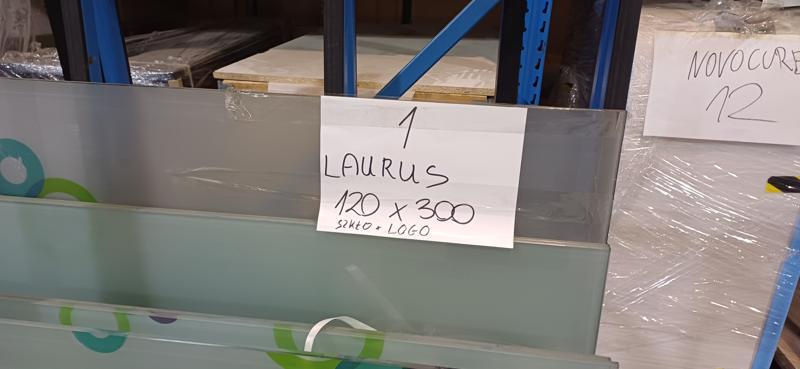 1
LAURUS
120 x 300
SZKŁO + LOGO
NOVOCURE
12